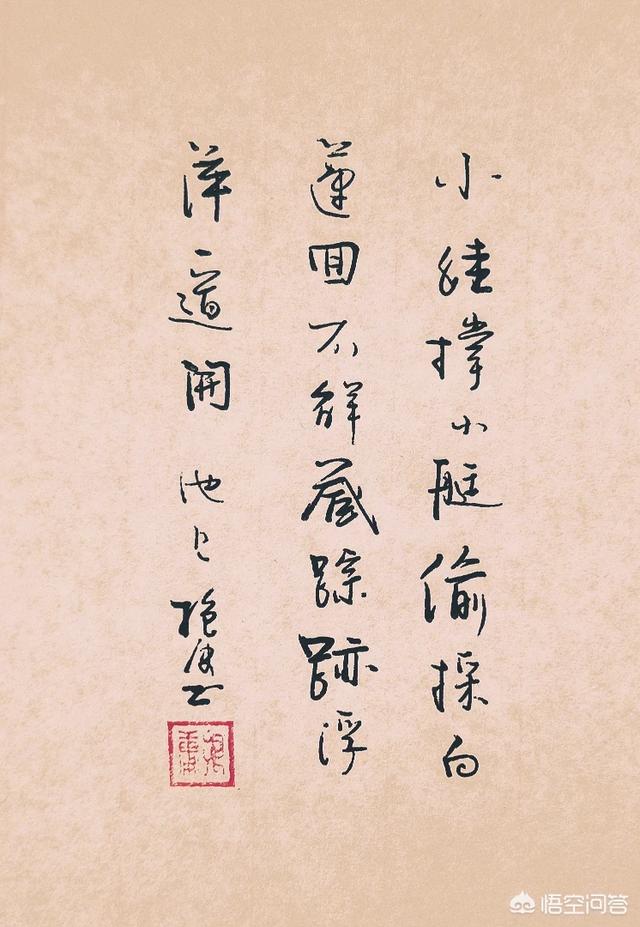 小娃撑小艇偷採白
蓮回不解藏踪跡浮
萍一道開 池上
悟空问答